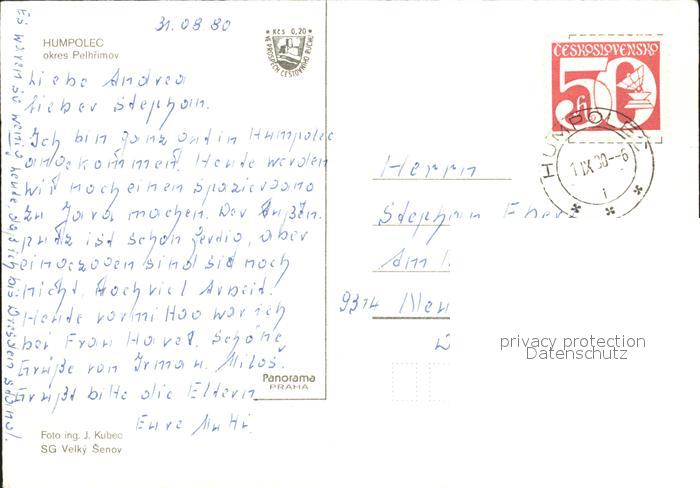 31.08.80
HUMPOLEC
okres Pelhřimov
Kčs 0,20
VE PROSPĚCH CESTOVNÍHO RUCHU
Liebe Andrea
Lieber Stephan.
Ich bin ganz gut in Humpolec
angekommen. Heute werden
wir noch einen Spaziergang
zu Jara machen. Der Außen-
putz ist schon fertig, aber
eingezogen sind sie noch
nicht. Noch viel Arbeit.
Heute vormittag war ich
bei Frau Havel. Schöne
Grüße von Irma u. Miloš.
Grüßt bitte die Eltern
Eure Mutti.
Es waren so wenig Leute, daß ich bis Dresden
ČESKOSLOVENSKO
50 h
HUMPOLEC
1 IX 80--6
i
Herrn
Stephan
Am
Panorama
PRAHA
Foto ing. J. Kubec
SG Velký Šenov
privacy protection
Datenschutz